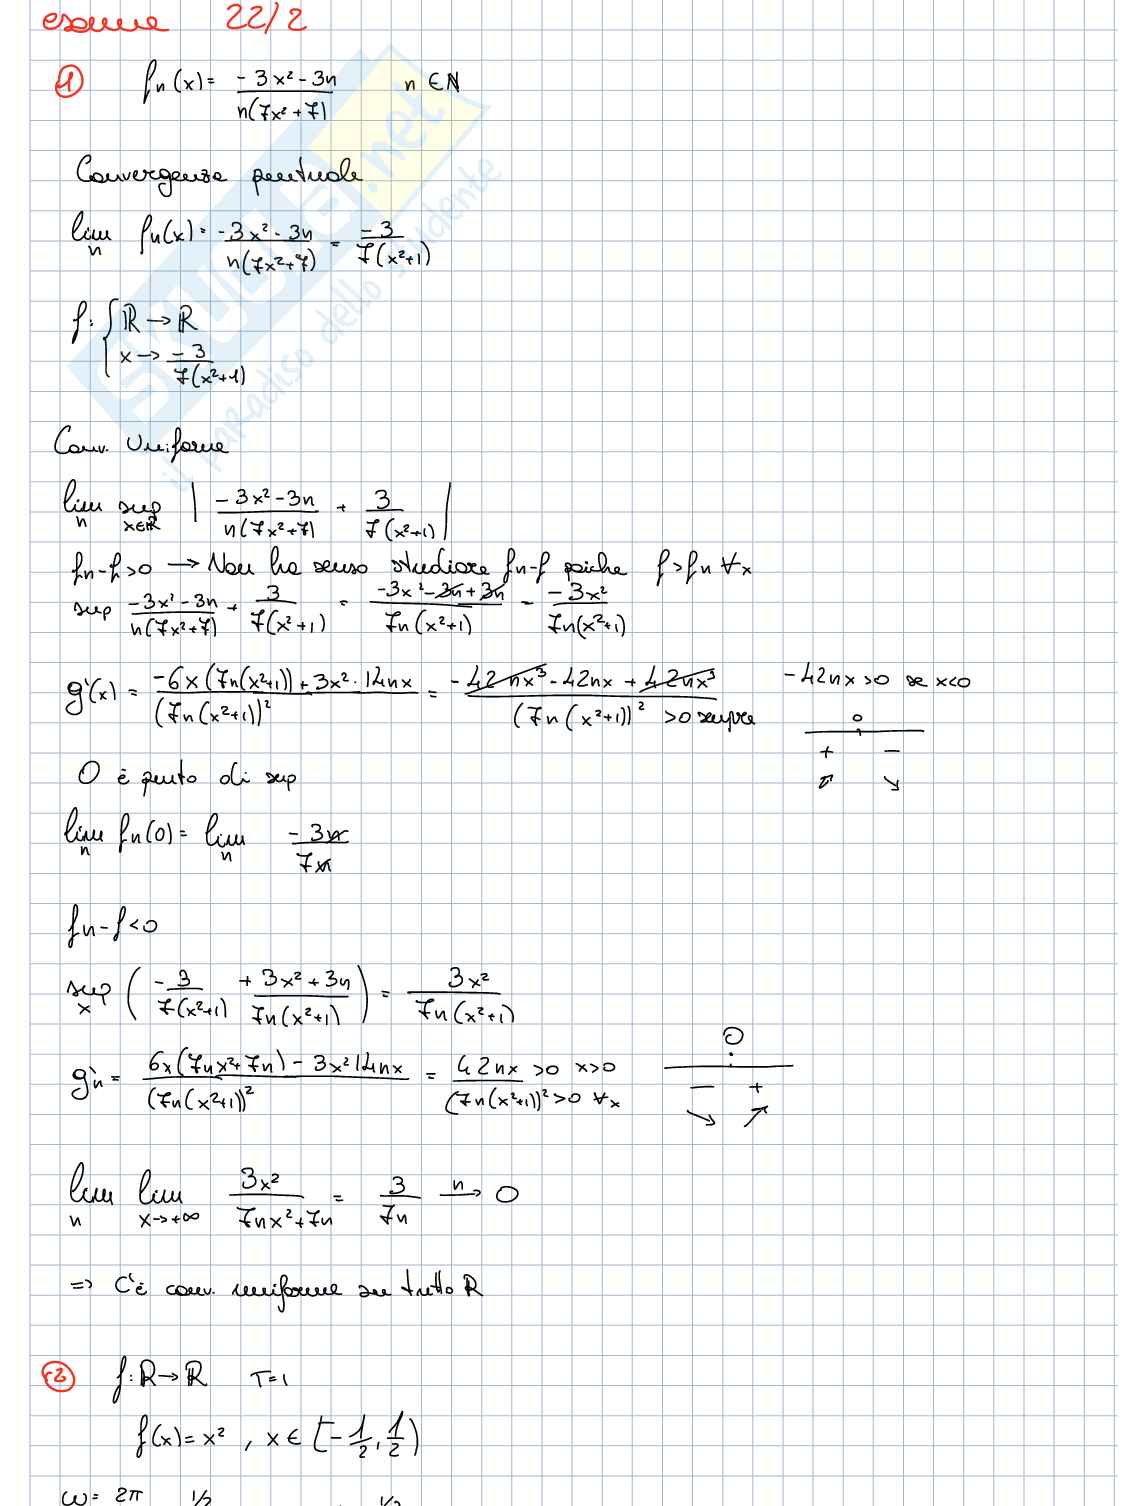 esame 22/2
1 fn(x) = (-3x² - 3n)/(n(7x² + 7)) n ∈ N
Convergenza puntuale
lim_n fn(x) = (-3x² - 3n)/(n(7x² + 7)) = -3/(7(x²+1))
f: { R → R
x → -3/(7(x²+1))
Conv. Uniforme
lim_n sup_{x∈R} | (-3x² - 3n)/(n(7x² + 7)) + 3/(7(x²+1)) |
fn - f > 0 → Non ha senso studiare fn - f poiche f > fn ∀x
sup (-3x² - 3n)/(n(7x² + 7)) + 3/(7(x²+1)) = (-3x² - 3n + 3n)/(7n(x²+1)) = -3x²/(7n(x²+1))
g'(x) = (-6x(7n(x²+1)) + 3x² · 14nx)/(7n(x²+1))² = (-42nx³ - 42nx + 42nx³)/((7n(x²+1))² >0 sempre) -42nx > 0 se x<0
0
+ −
↗ ↘
0 è punto di sup
lim_n fn(0) = lim_n -3n/7n
fn - f < 0
sup_x ( -3/(7(x²+1)) + (3x² + 3n)/(7n(x²+1)) ) = 3x²/(7n(x²+1))
g'n = (6x(7nx² + 7n) - 3x² 14nx)/(7n(x²+1))² = 42nx > 0 x>0 / (7n(x²+1))² > 0 ∀x
0
− +
↘ ↗
lim_n lim_{x→+∞} 3x²/(7nx² + 7n) = 3/7n →^n 0
=> C'è conv. uniforme su tutto R
2 f: R → R T=1
f(x) = x² , x ∈ [-1/2, 1/2)
ω = 2π 1/2 1/2
il paradiso dello studente